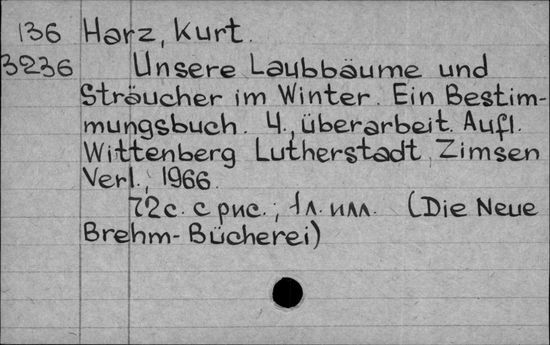 136 Harz, Kurt.
3236 Unsere Laubbäume und
Sträucher im Winter. Ein Bestim-
mungsbuch. 4., überarbeit. Aufl.
Wittenberg Lutherstadt, Zimsen
Verl., 1966.
72с. с рис.; 1л. илл. (Die Neue
Brehm-Bücherei)